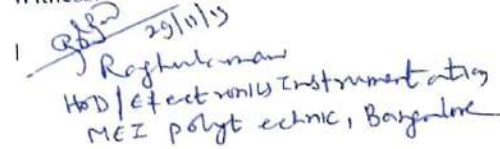 1 29/11/19
Raghukumar
HOD/Electronics Instrumentation
MEI polytechnic, Bangalore